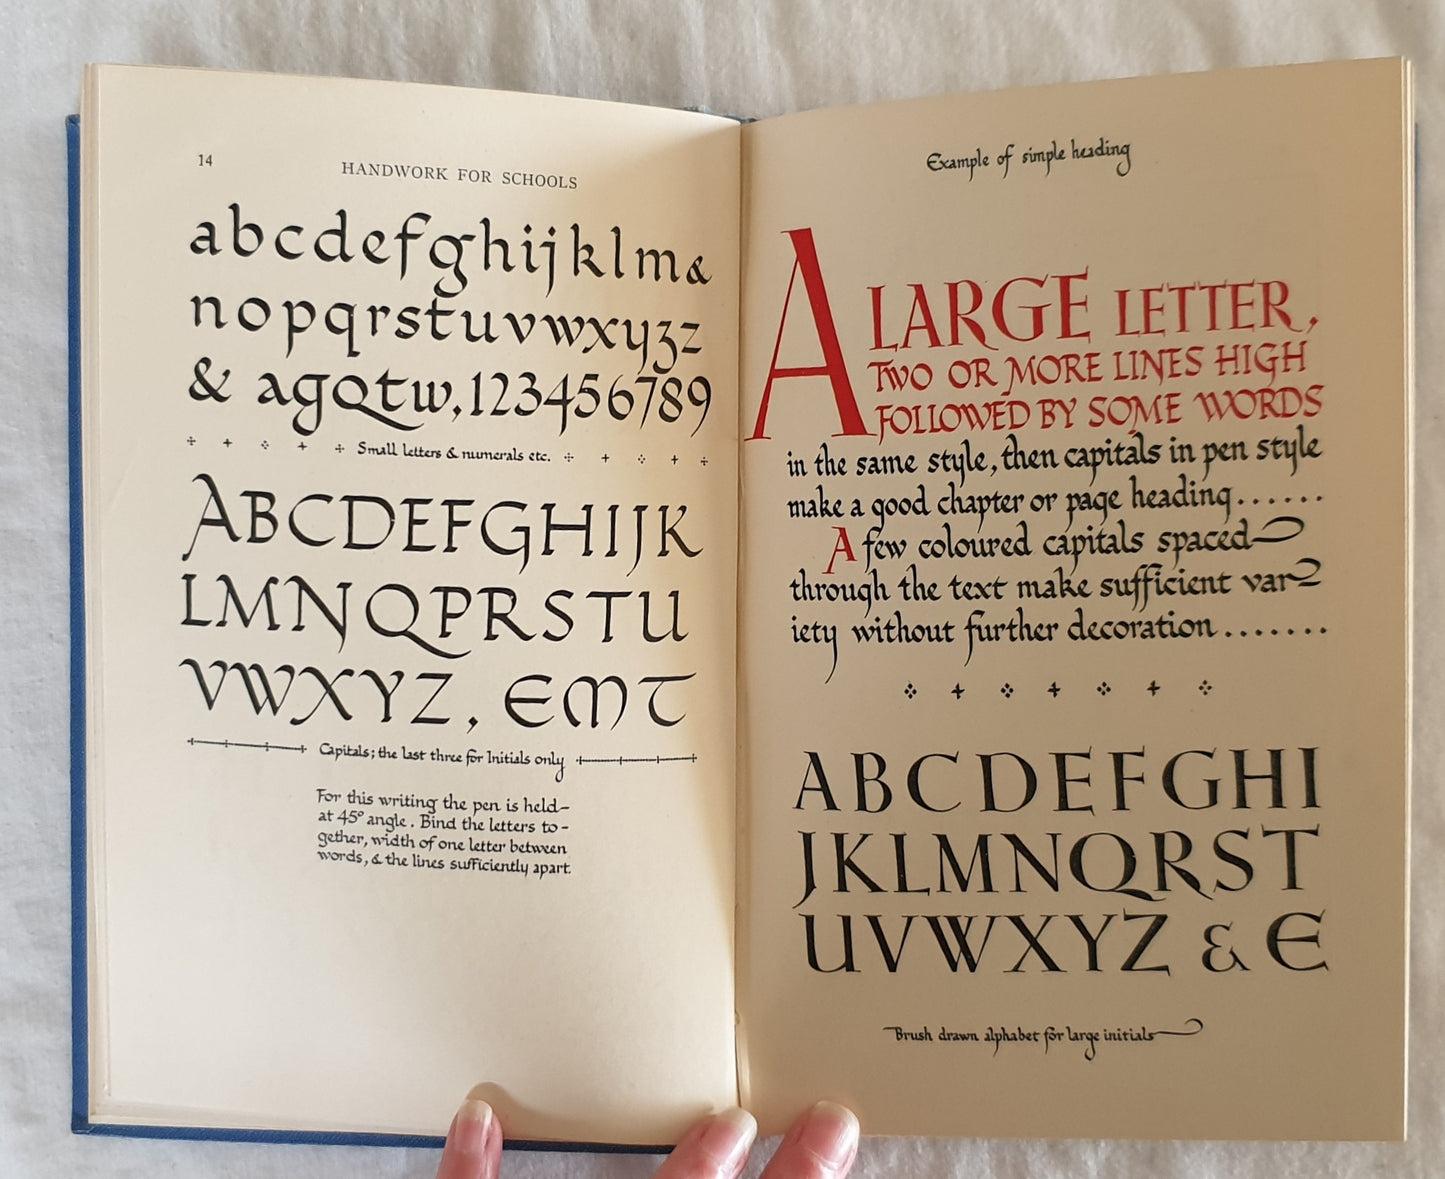 14
HANDWORK FOR SCHOOLS
abcdefghijklm&
nopqrstuvwxyzz
& agQtw, 123456789
Small letters & numerals etc.
ABCDEFGHIJK
LMNQPRSTU
VWXYZ, EMT
Capitals; the last three for Initials only
For this writing the pen is held-
at 45° angle. Bind the letters to-
gether, width of one letter between
words, & the lines sufficiently apart.
Example of simple heading
A LARGE LETTER,
TWO OR MORE LINES HIGH
FOLLOWED BY SOME WORDS
in the same style, then capitals in pen style
make a good chapter or page heading......
A few coloured capitals spaced
through the text make sufficient var
iety without further decoration.......
ABCDEFGHI
JKLMNQRST
UVWXYZ & E
Brush drawn alphabet for large initials